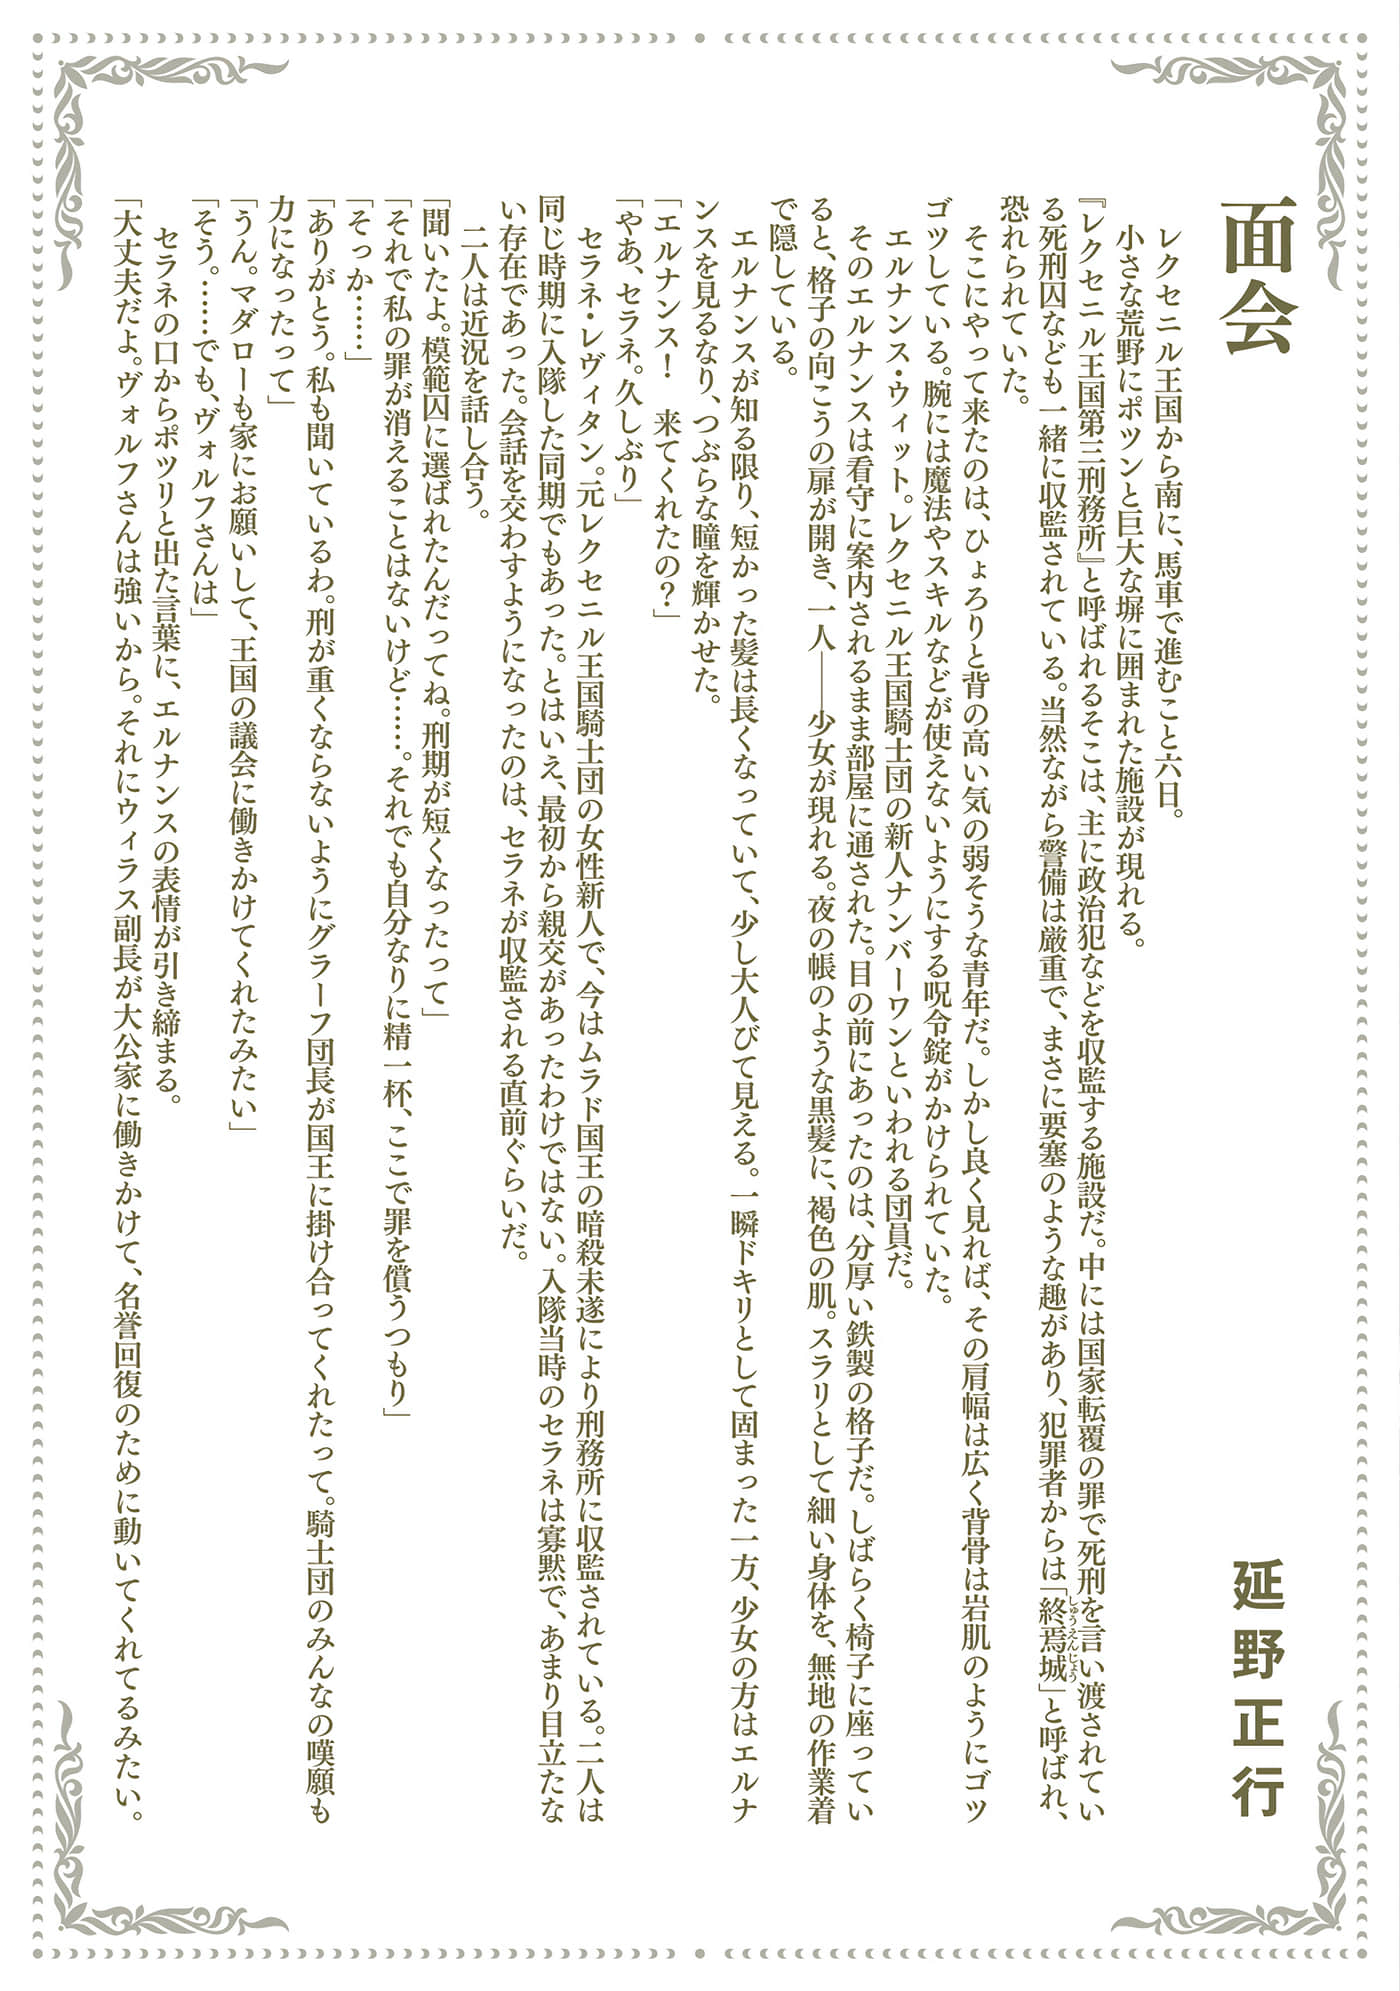 面会
延野正行
レクセニル王国から南に、馬車で進むこと六日。
小さな荒野にポツンと巨大な塀に囲まれた施設が現れる。
『レクセニル王国第三刑務所』と呼ばれるそこは、主に政治犯などを収監する施設だ。中には国家転覆の罪で死刑を言い渡されてい
る死刑囚なども一緒に収監されている。当然ながら警備は厳重で、まさに要塞のような趣があり、犯罪者からは「終焉城」と呼ばれ、
しゅうえんじょう
恐れられていた。
そこにやって来たのは、ひょろりと背の高い気の弱そうな青年だ。しかし良く見れば、その肩幅は広く背骨は岩肌のようにゴツ
ゴツしている。腕には魔法やスキルなどが使えないようにする呪令錠がかけられていた。
エルナンス・ウィット。レクセニル王国騎士団の新人ナンバーワンといわれる団員だ。
そのエルナンスは看守に案内されるまま部屋に通された。目の前にあったのは、分厚い鉄製の格子だ。しばらく椅子に座ってい
ると、格子の向こうの扉が開き、一人――少女が現れる。夜の帳のような黒髪に、褐色の肌。スラリとして細い身体を、無地の作業着
で隠している。
エルナンスが知る限り、短かった髪は長くなっていて、少し大人びて見える。一瞬ドキリとして固まった一方、少女の方はエルナ
ンスを見るなり、つぶらな瞳を輝かせた。
「エルナンス！　来てくれたの？」
「やあ、セラネ。久しぶり」
セラネ・レヴィタン。元レクセニル王国騎士団の女性新人で、今はムラド国王の暗殺未遂により刑務所に収監されている。二人は
同じ時期に入隊した同期でもあった。とはいえ、最初から親交があったわけではない。入隊当時のセラネは寡黙で、あまり目立たな
い存在であった。会話を交わすようになったのは、セラネが収監される直前ぐらいだ。
二人は近況を話し合う。
「聞いたよ。模範囚に選ばれたんだってね。刑期が短くなったって」
「それで私の罪が消えることはないけど……。それでも自分なりに精一杯、ここで罪を償うつもり」
「そっか……」
「ありがとう。私も聞いているわ。刑が重くならないようにグラーフ団長が国王に掛け合ってくれたって。騎士団のみんなの嘆願も
力になったって」
「うん。マダローも家にお願いして、王国の議会に働きかけてくれたみたい」
「そう。……でも、ヴォルフさんは」
セラネの口からポツリと出た言葉に、エルナンスの表情が引き締まる。
「大丈夫だよ。ヴォルフさんは強いから。それにウィラス副長が大公家に働きかけて、名誉回復のために動いてくれてるみたい。